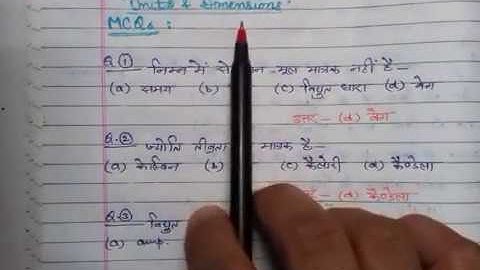 Units & Dimensions
MCQs :
Q.(1) निम्न में से मूल मात्रक नहीं है-
(a) समय (b) (c) विद्युत धारा (d) वेग
उत्तर- (d) वेग
Q.(2) ज्योति तीव्रता मात्रक है-
(a) केल्विन (b) (c) कैलोरी (d) कैण्डेला
(d) कैण्डेला
Q.(3) विद्युत
(a) amp.